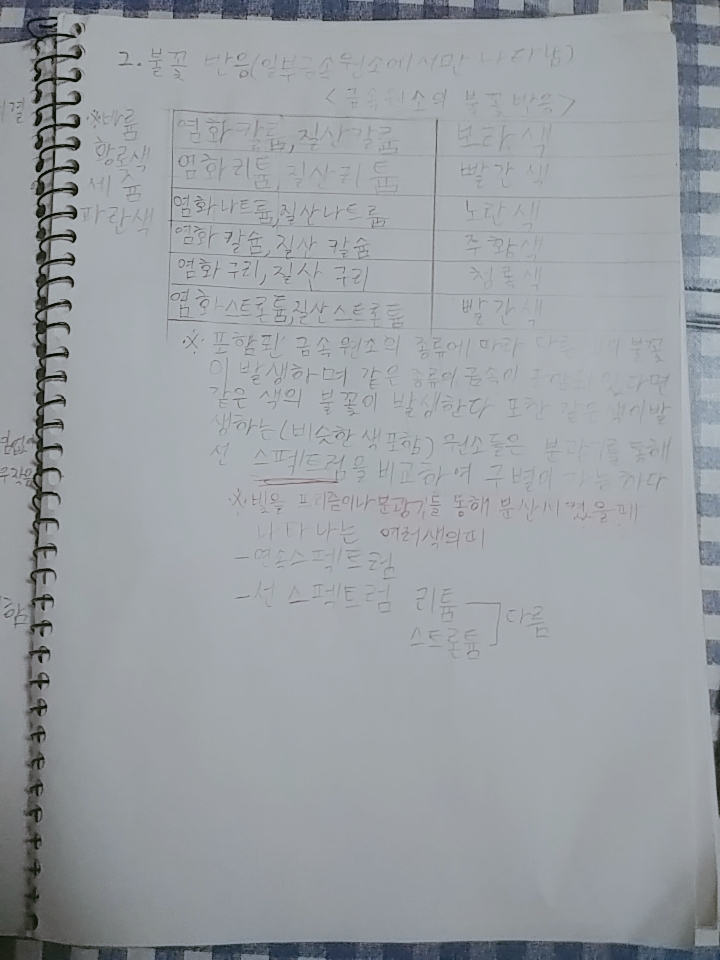 2. 불꽃 반응(일부금속원소에서만 나타남)
<금속원소의 불꽃반응>
※바륨
황록색
세슘
파란색
염화칼륨, 질산칼륨 보라색
염화리튬, 질산리튬 빨간색
염화나트륨, 질산나트륨 노란색
염화 칼슘, 질산 칼슘 주황색
염화 구리, 질산 구리 청록색
염화스트론튬, 질산스트론튬 빨간색
※ 포함된 금속원소의 종류에 따라 다른 색의 불꽃
이 발생하며 같은 종류의 금속이 포함되 있다면
같은 색의 불꽃이 발생한다 또한 같은 색이발
생하는(비슷한 색포함) 원소들은 분광기를 통해
선 스펙트럼을 비교하여 구별이 가능하다
※빛을 프리즘이나 분광기를 통해 분산시켰을때
나타나는 여러색의띠
-연속스펙트럼
-선 스펙트럼 리튬
스트론튬 다름